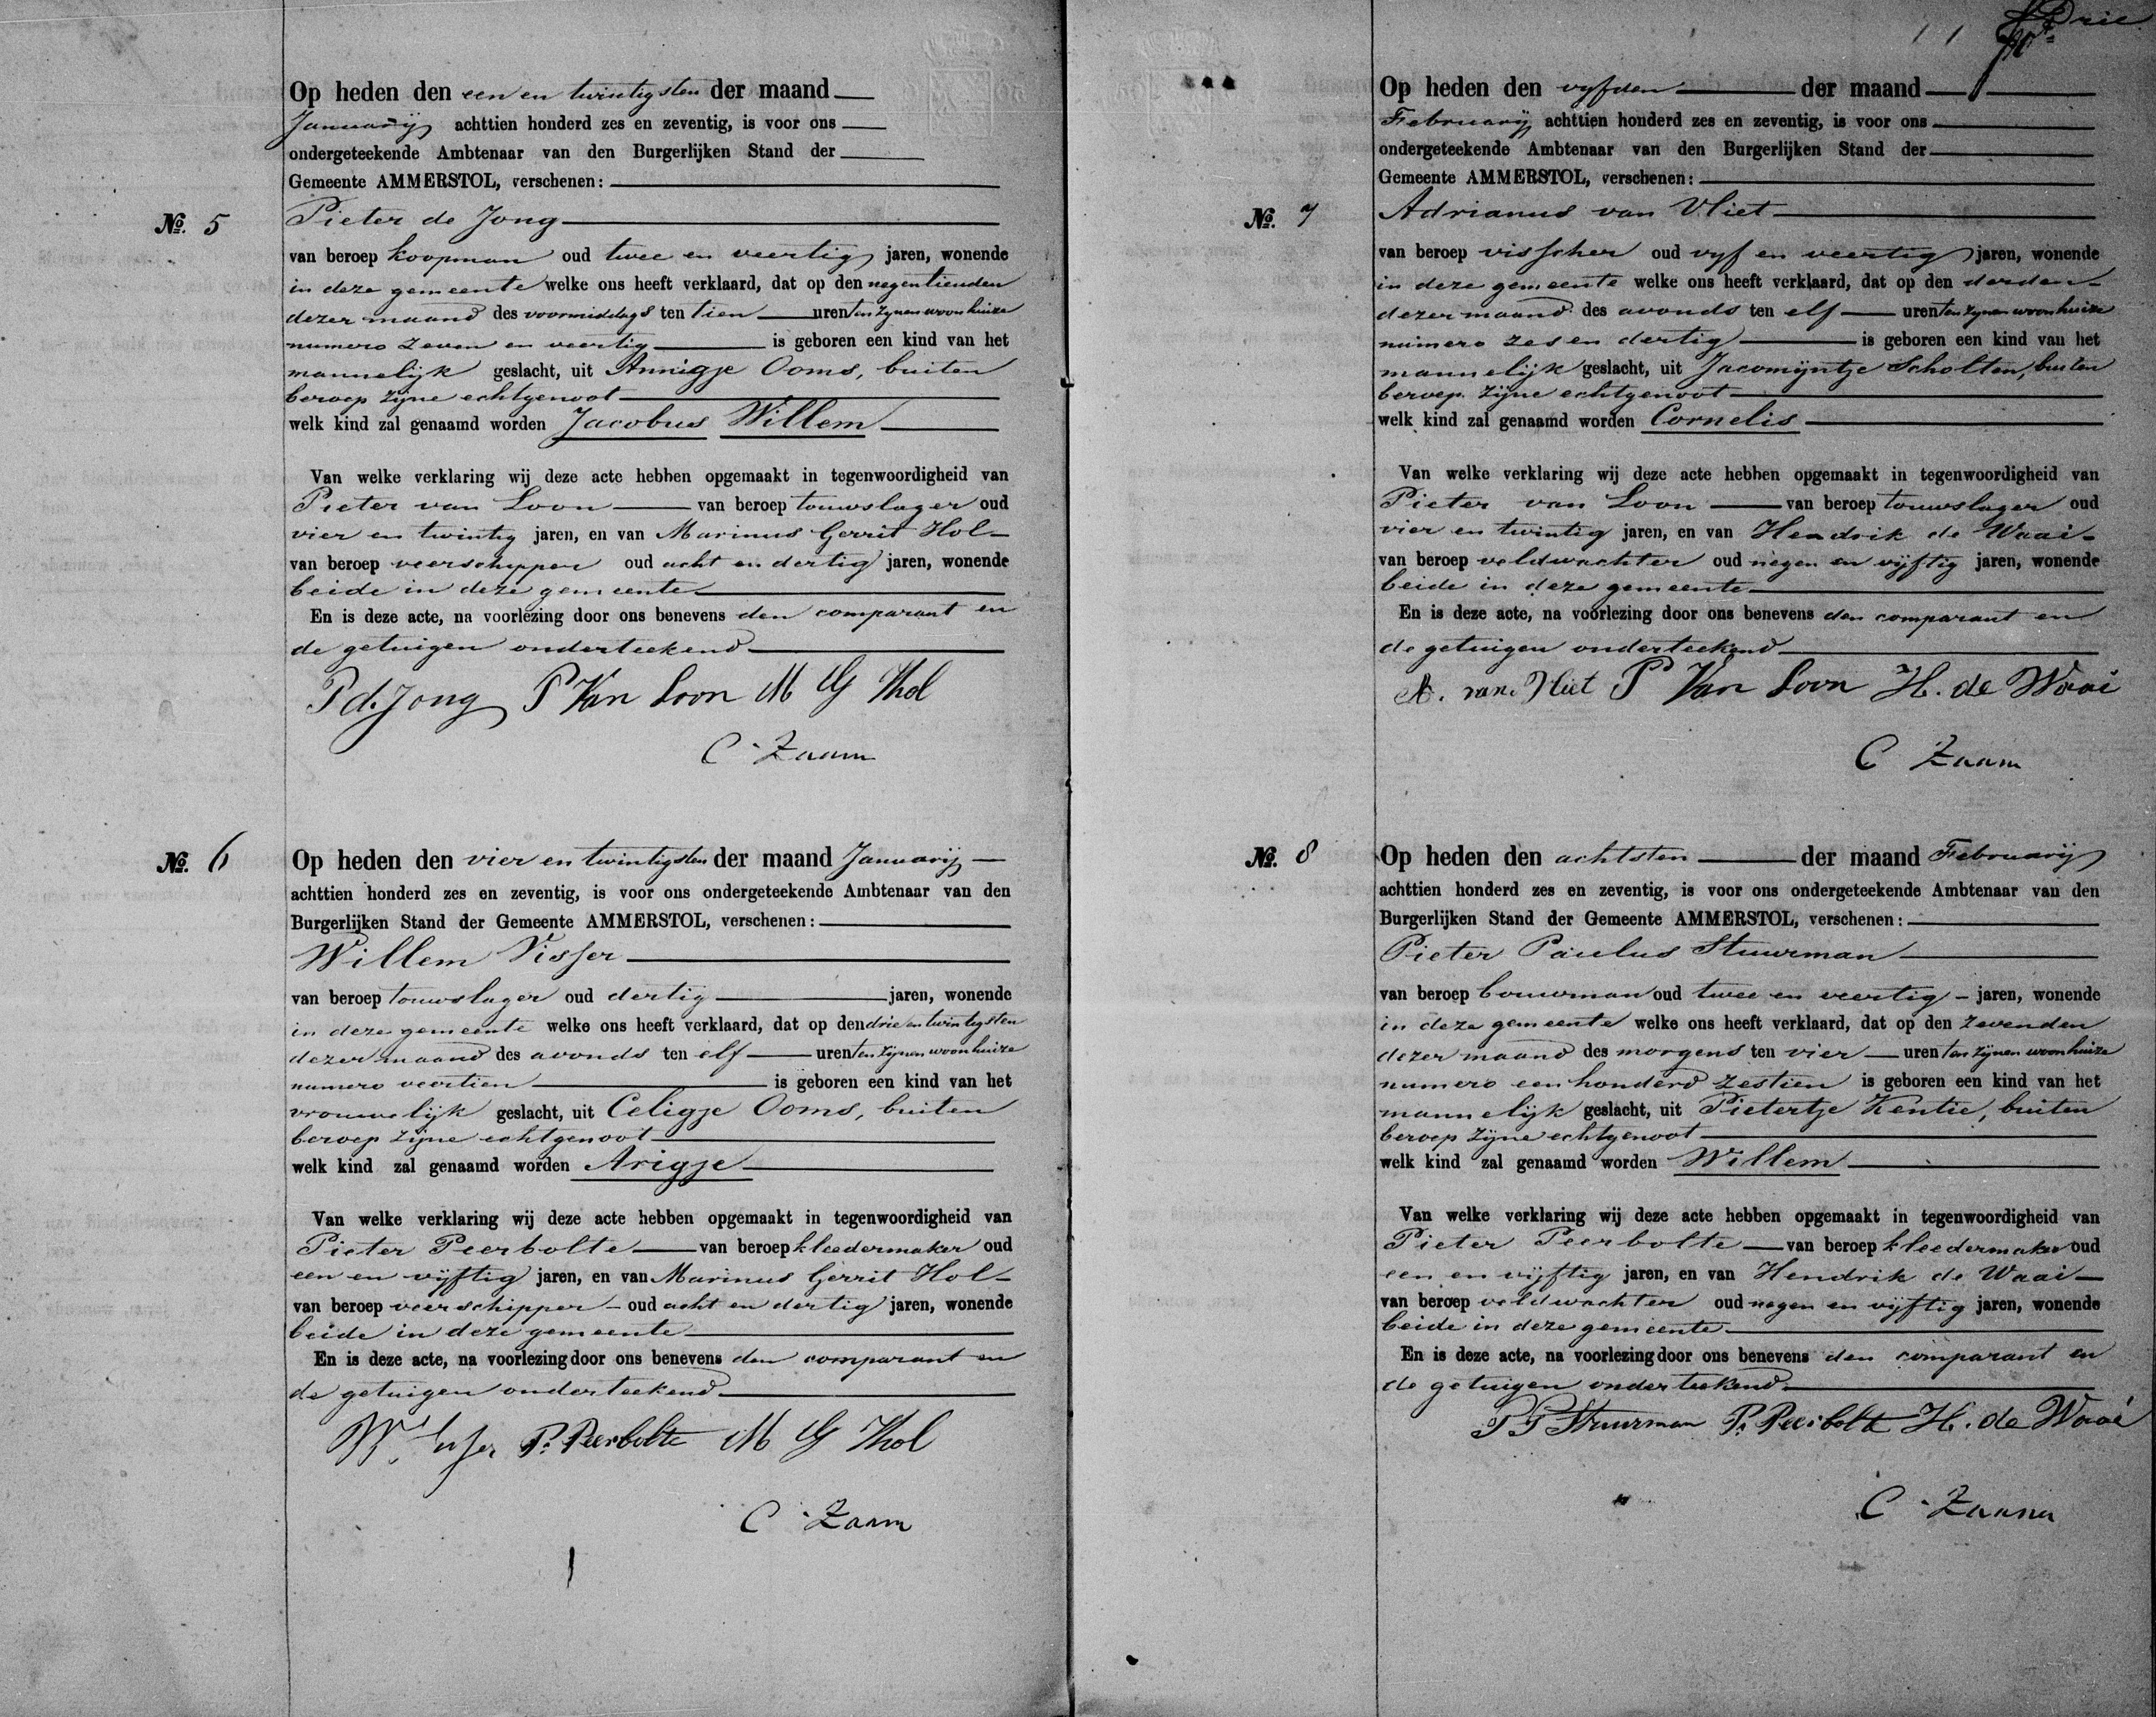 Op heden den een en twintigsten der maand
Januarij achttien honderd zes en zeventig, is voor ons
ondergeteekende Ambtenaar van den Burgerlijken Stand der
Gemeente AMMERSTOL, verschenen:
No. 5 Pieter de Jong
van beroep koopman oud twee en veertig jaren, wonende
in deze gemeente welke ons heeft verklaard, dat op den negentienden
dezer maand des voormiddags ten tien uren ten zijnen woonhuize
numero zeven en veertig is geboren een kind van het
mannelijk geslacht, uit Annigje Ooms, buiten
beroep zijne echtgenoot
welk kind zal genaamd worden Jacobus Willem
Van welke verklaring wij deze acte hebben opgemaakt in tegenwoordigheid van
Pieter van Loon van beroep touwslager oud
vier en twintig jaren, en van Marinus Gerrit Hol
van beroep veerschipper oud acht en dertig jaren, wonende
beide in deze gemeente
En is deze acte, na voorlezing door ons benevens den comparant en
de getuigen onderteekend
P d. Jong P Van Loon M G Hol
C Zaam
No. 6 Op heden den vier en twintigsten der maand Januarij
achttien honderd zes en zeventig, is voor ons ondergeteekende Ambtenaar van den
Burgerlijken Stand der Gemeente AMMERSTOL, verschenen:
Willem Visser
van beroep touwslager oud dertig jaren, wonende
in deze gemeente welke ons heeft verklaard, dat op den drie en twintigsten
dezer maand des avonds ten elf uren ten zijnen woonhuize
numero veertien is geboren een kind van het
vrouwelijk geslacht, uit Celigje Ooms, buiten
beroep zijne echtgenoot
welk kind zal genaamd worden Arigje
Van welke verklaring wij deze acte hebben opgemaakt in tegenwoordigheid van
Pieter Peerbolte van beroep kleedermaker oud
een en vijftig jaren, en van Marinus Gerrit Hol
van beroep veerschipper oud acht en dertig jaren, wonende
beide in deze gemeente
En is deze acte, na voorlezing door ons benevens den comparant en
de getuigen onderteekend
W. Visser P. Peerbolte M G Hol
C Zaam
Drie
Op heden den vyfden der maand
Februarij achttien honderd zes en zeventig, is voor ons
ondergeteekende Ambtenaar van den Burgerlijken Stand der
Gemeente AMMERSTOL, verschenen:
No. 7 Adrianus van Vliet
van beroep visscher oud vyf en veertig jaren, wonende
in deze gemeente welke ons heeft verklaard, dat op den derden
dezer maand des avonds ten elf uren ten zynen woonhuize
numero zes en dertig is geboren een kind van het
mannelijk geslacht, uit Jacomijntje Scholten, buiten
beroep zijne echtgenoot
welk kind zal genaamd worden Cornelis
Van welke verklaring wij deze acte hebben opgemaakt in tegenwoordigheid van
Pieter van Loon van beroep touwslager oud
vier en twintig jaren, en van Hendrik de Waai
van beroep veldwachter oud negen en vijftig jaren, wonende
beide in deze gemeente
En is deze acte, na voorlezing door ons benevens den comparant en
de getuigen onderteekend
A. van Vliet P Van Loon H. de Waai
C Zaam
No. 8 Op heden den achtsten der maand Februarij
achttien honderd zes en zeventig, is voor ons ondergeteekende Ambtenaar van den
Burgerlijken Stand der Gemeente AMMERSTOL, verschenen:
Pieter Paulus Stuurman
van beroep bouwman oud twee en veertig jaren, wonende
in deze gemeente welke ons heeft verklaard, dat op den zevenden
dezer maand des morgens ten vier uren ten zijnen woonhuize
numero een honderd zestien is geboren een kind van het
mannelijk geslacht, uit Pietertje Kentie, buiten
beroep zijne echtgenoot
welk kind zal genaamd worden Willem
Van welke verklaring wij deze acte hebben opgemaakt in tegenwoordigheid van
Pieter Peerbolte van beroep kleedermaker oud
een en vijftig jaren, en van Hendrik de Waai
van beroep veldwachter oud negen en vijftig jaren, wonende
beide in deze gemeente
En is deze acte, na voorlezing door ons benevens den comparant en
de getuigen onderteekend
P P Stuurman P. Peerbolte H. de Waai
C Zaam